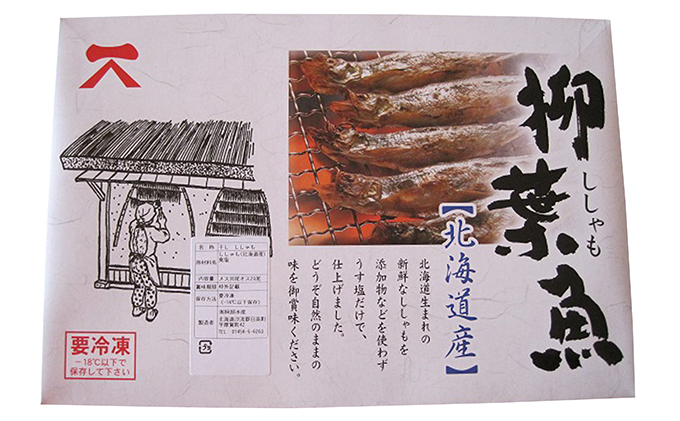 柳葉魚
ししゃも
【北海道産】
北海道生まれの
新鮮なししゃもを
添加物などを使わず
うす塩だけで、
仕上げました。
どうぞ自然のままの
味を御賞味ください。
名称 干し ししゃも
原材料名 ししゃも(北海道産)
食塩
内容量
賞味期限 枠外記載
保存方法 要冷凍
(-18℃以下保存)
製造者
北海道沙流郡日高町
TEL 01456-5-6263
プラ
要冷凍
－18℃以下で
保存して下さい